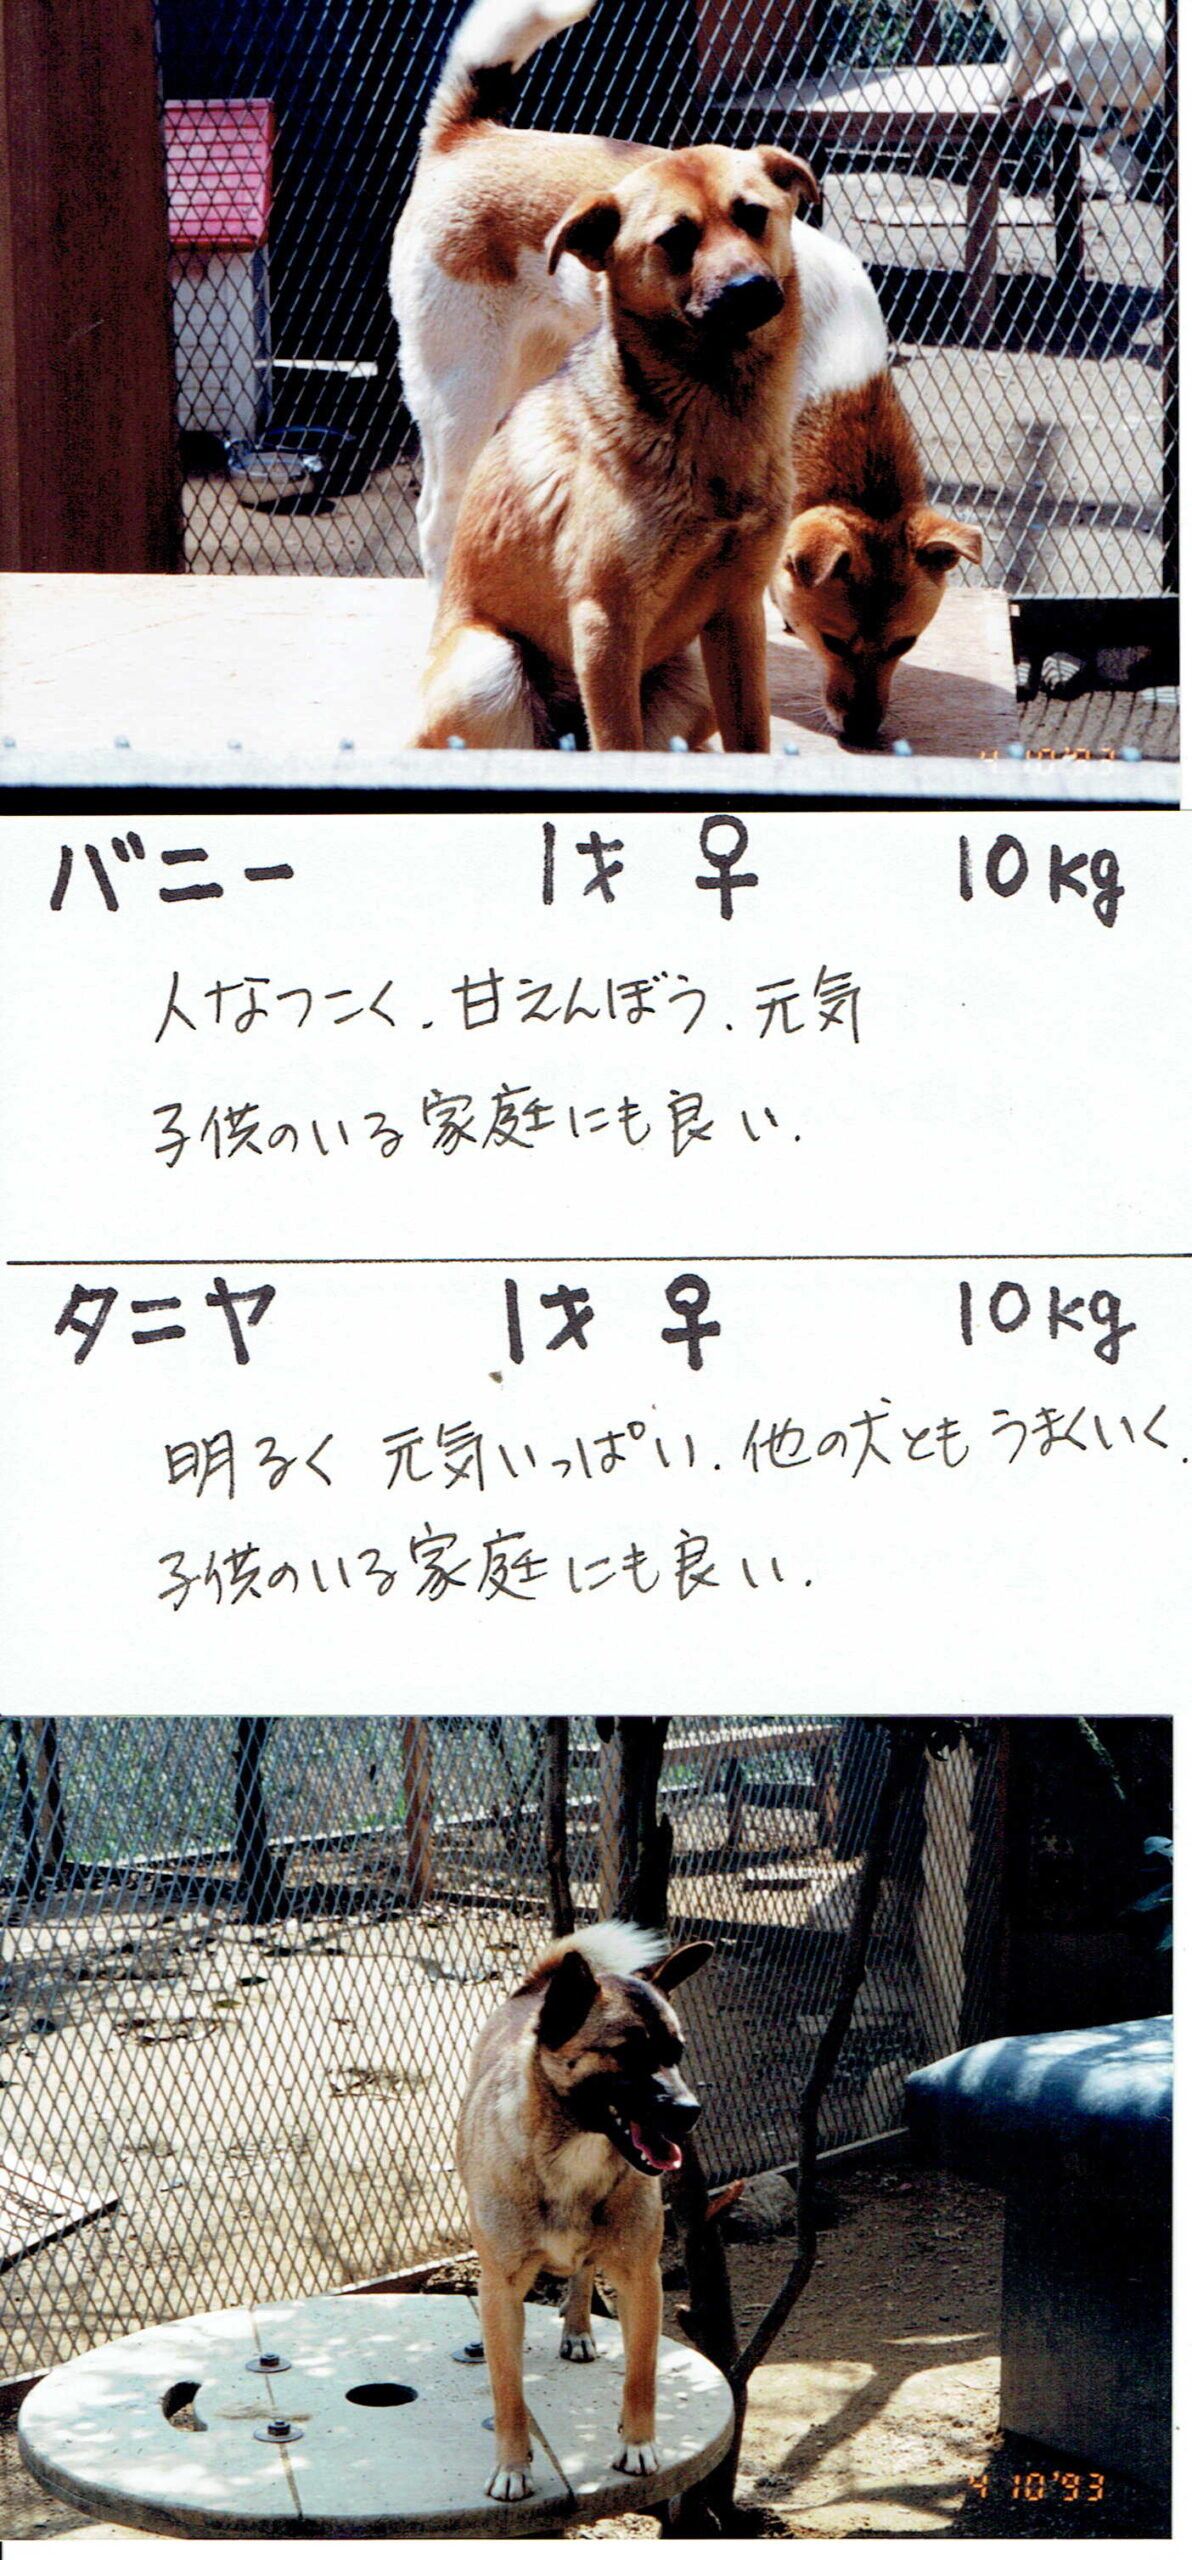 4 10'93
バニー 1才 ♀ 10kg
人なつこく、甘えんぼう、元気
子供のいる家庭にも良い.
タニヤ 1才 ♀ 10kg
明るく 元気いっぱい. 他の犬ともうまくいく.
子供のいる家庭にも良い.
4 10'93